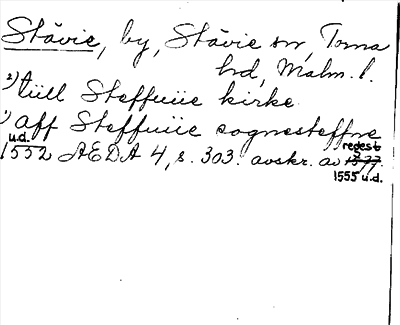 Stävie, by, Stävie sn, Torna
hd, Malm. l.
2) tiill Steffuiie kirke
1) aff Steffuiie sognesteffne
u.d.
regest
1552 AEDA 4, s. 303. avskr. av 1577.
1555 u.d.